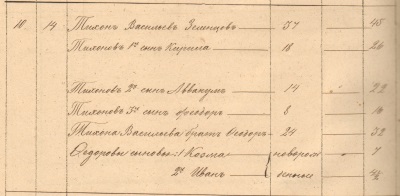 10 14 Тихонъ Васильевъ Земцовъ 37 45
Тихоновъ 1й сынъ Кирила 18 26
Тихоновъ 2й сынъ Аввакумъ 14 22
Тихоновъ 3й сынъ Ѳеодоръ 8 16
Тихона Васильева братъ Ѳедоръ 24 32
Ѳедоровы сыновья: 1 Козма новорож 7
2й Иванъ